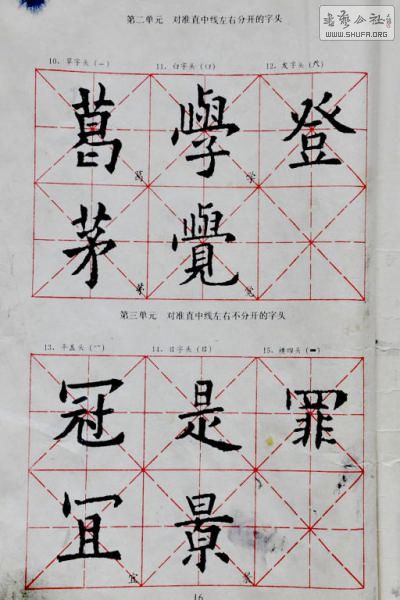 書藝公社
WWW.SHUFA.ORG
第二单元 对准直中线左右分开的字头
10、草字头(艹) 11、臼字头(臼) 12、发字头(癶)
葛 學 登
葛 学
茅 覺
茅 觉
第三单元 对准直中线左右不分开的字头
13、平盖头(冖) 14、日字头(日) 15、横四头(罒)
冠 是 罪
宜 景
宜 景
16